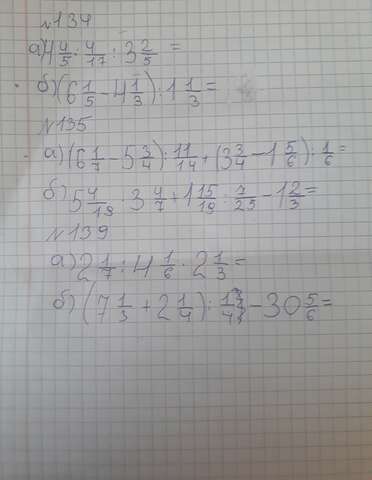 №134
а) 4 4/5 · 4/17 : 3 2/5 =
б) (6 1/5 - 4 1/3) : 1 1/3 =
№135
а) (6 1/7 - 5 3/4) : 11/14 + (3 3/4 - 1 5/6) : 1/6 =
б) 5 4/19 · 3 4/7 + 1 15/19 : 7/25 - 1 2/3 =
№139
а) 2 1/7 : 4 1/6 · 2 1/3 =
б) (7 1/3 + 2 1/4) : - 30 5/6 =